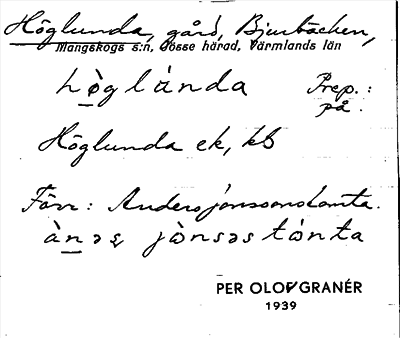 Höglunda, gård, Bjurbäcken,
Mangskogs s:n, Jösse härad, Värmlands län
hò̱glánda Prep.:
på.
Höglunda ek, kb
Förr: Andersjonssonstomta.
àṉəʂ jònsəs tómta
PER OLOV GRANÉR
1939